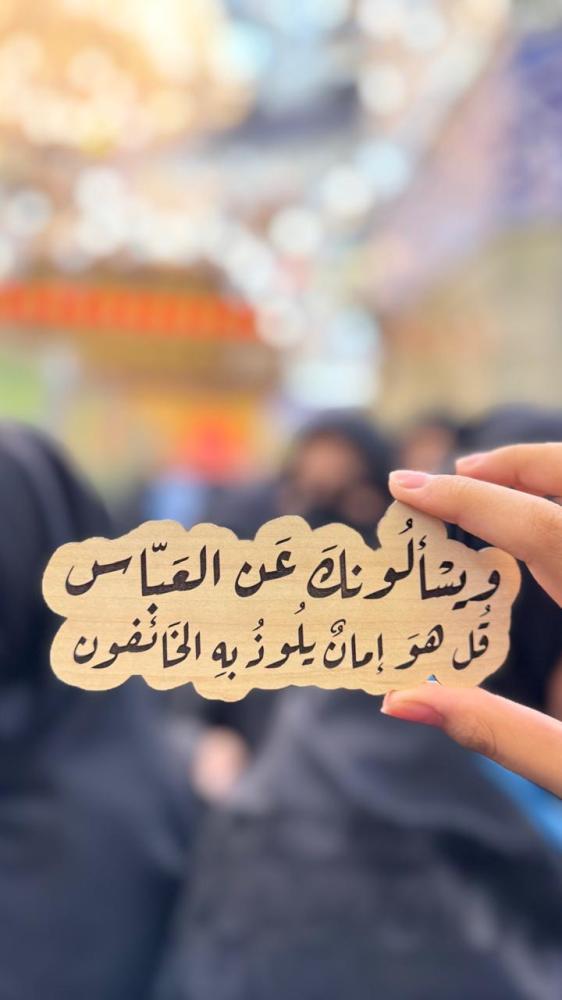 ويسْألُونكَ عَن العَبّاس
قُل هوَ إمانٌ يلُوذُ بهِ الخَائفون